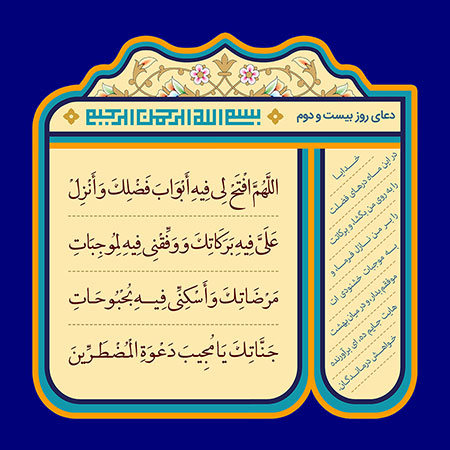 دعای روز بیست و دوم
بسم الله الرحمن الرحیم
اللَّهُمَّ افْتَحْ لِی فِیهِ أَبْوَابَ فَضْلِکَ وَ أَنْزِلْ
عَلَیَّ فِیهِ بَرَکَاتِکَ وَ وَفِّقْنِی فِیهِ لِمُوجِبَاتِ
مَرْضَاتِکَ وَ أَسْکِنِّی فِیهِ بُحْبُوحَاتِ
جَنَّاتِکَ یَا مُجِیبَ دَعْوَةِ الْمُضْطَرِّینَ
خدایا
در این ماه درهای فضلت
را به روی من بگشا، و برکاتت
را بر من نازل فرما، و
به موجبات خشنودی ات
موفقم بدار، و در میان بهشت
هایت جایم ده، ای برآورنده
خواهش درماندگان.